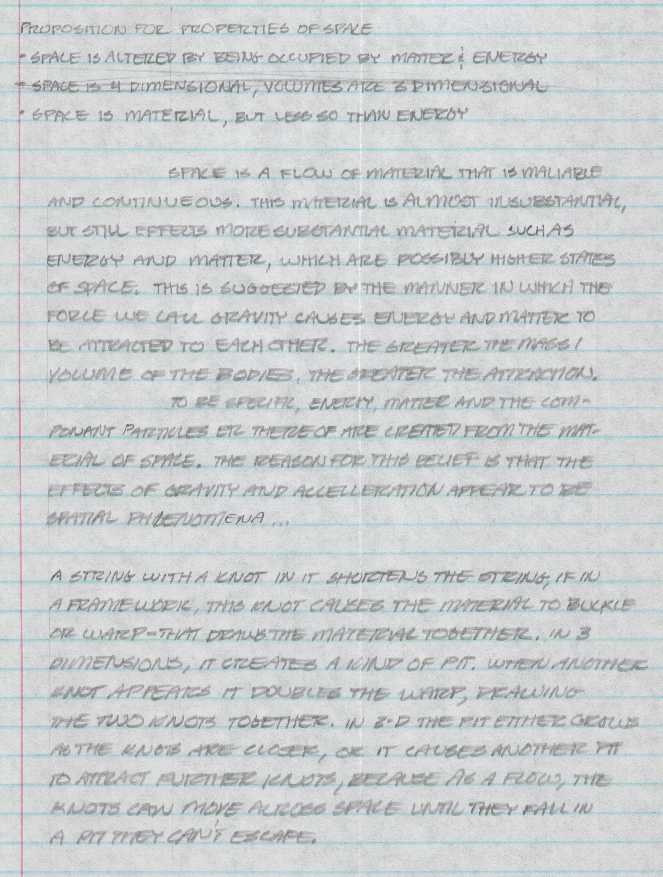 PROPOSITION FOR PROPERTIES OF SPACE
- SPACE IS ALTERED BY BEING OCCUPIED BY MATTER & ENERGY
- SPACE IS 4 DIMENSIONAL, VOLUMES ARE 3 DIMENSIONAL
- SPACE IS MATERIAL, BUT LESS SO THAN ENERGY
SPACE IS A FLOW OF MATERIAL THAT IS MALIABLE
AND CONTINUEOUS. THIS MATERIAL IS ALMOST INSUBSTANTIAL,
BUT STILL EFFECTS MORE SUBSTANTIAL MATERIAL SUCH AS
ENERGY AND MATTER, WHICH ARE POSSIBLY HIGHER STATES
OF SPACE. THIS IS SUGGESTED BY THE MANNER IN WHICH THE
FORCE WE CALL GRAVITY CAUSES ENERGY AND MATTER TO
BE ATTRACTED TO EACH OTHER. THE GREATER THE MASS /
VOLUME OF THE BODIES, THE GREATER THE ATTRACTION.
TO BE SPECIFIC, ENERGY, MATTER AND THE COM-
PONANT PARTICLES ETC THERE OF ARE CREATED FROM THE MAT-
ERIAL OF SPACE. THE REASON FOR THIS BELIEF IS THAT THE
EFFECTS OF GRAVITY AND ACCELLERATION APPEAR TO BE
SPATIAL PHENOMENA...
A STRING WITH A KNOT IN IT SHORTENS THE STRING, IF IN
A FRAMEWORK, THIS KNOT CAUSES THE MATERIAL TO BUCKLE
OR WARP-THAT DRAWS THE MATERIAL TOGETHER. IN 3
DIMENSIONS, IT CREATES A KIND OF PIT. WHEN ANOTHER
KNOT APPEARS IT DOUBLES THE WARP, DRAWING
THE TWO KNOTS TOGETHER. IN 3-D THE PIT EITHER GROWS
AS THE KNOTS ARE CLOSER, OR IT CAUSES ANOTHER PIT
TO ATTRACT FURTHER KNOTS, BECAUSE AS A FLOW, THE
KNOTS CAN MOVE ACROSS SPACE UNTIL THEY FALL IN
A PIT THEY CAN'T ESCAPE.